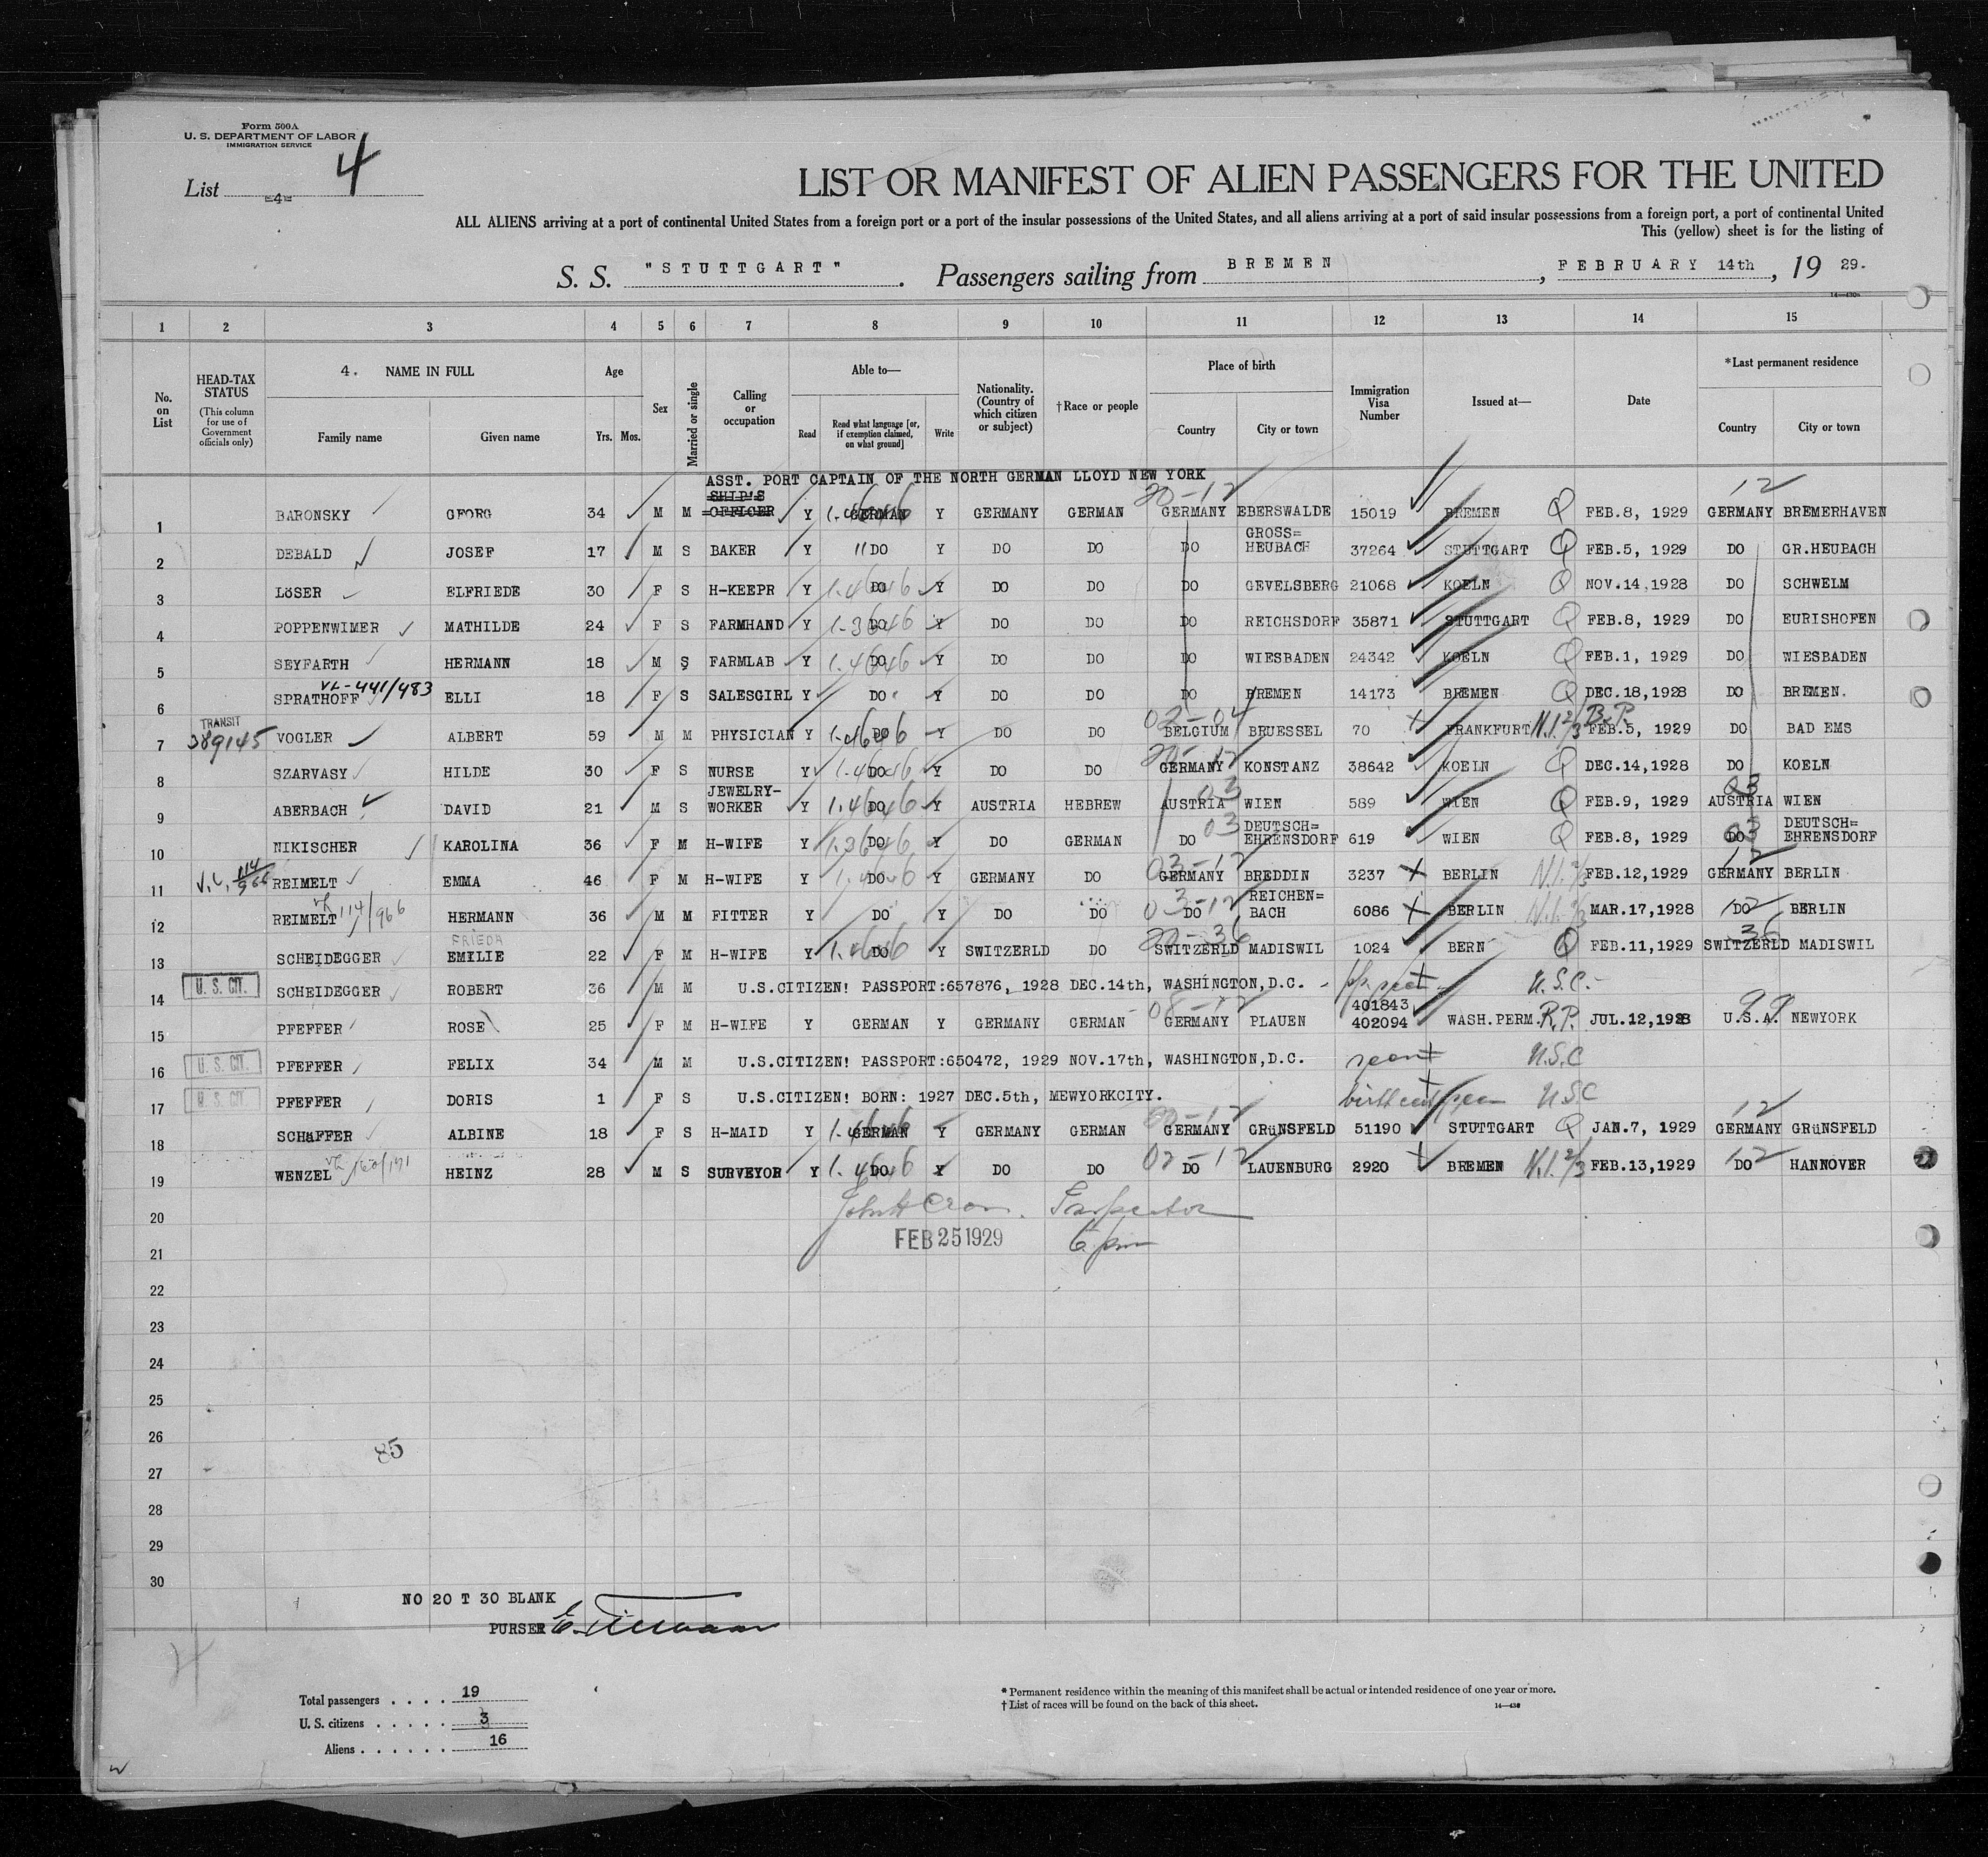 Form 500A
U. S. DEPARTMENT OF LABOR
IMMIGRATION SERVICE
List =4= 4
LIST OR MANIFEST OF ALIEN PASSENGERS FOR THE UNITED
ALL ALIENS arriving at a port of continental United States from a foreign port or a port of the insular possessions of the United States, and all aliens arriving at a port of said insular possessions from a foreign port, a port of continental United
This (yellow) sheet is for the listing of
S. S. "STUTTGART" . Passengers sailing from BREMEN , FEBRUARY 14th , 19 29.
1 2 3 4 5 6 7 8 9 10 11 12 13 14 15
No. on List HEAD-TAX STATUS (This column for use of Government officials only) 4. NAME IN FULL Family name Given name Age Yrs. Mos. Sex Married or single Calling or occupation Able to— Read Read what language [or, if exemption claimed, on what ground] Write Nationality. (Country of which citizen or subject) †Race or people Place of birth Country City or town Immigration Visa Number Issued at— Date *Last permanent residence Country City or town
ASST. PORT CAPTAIN OF THE NORTH GERMAN LLOYD NEW YORK
20-12 12
1 BARONSKY GEORG 34 M M SHIP'S OFFICER Y GERMAN Y GERMANY GERMAN GERMANY EBERSWALDE 15019 BREMEN Q FEB.8, 1929 GERMANY BREMERHAVEN
2 DEBALD JOSEF 17 M S BAKER Y " DO Y DO DO DO GROSS= HEUBACH 37264 STUTTGART Q FEB.5, 1929 DO GR.HEUBACH
3 LöSER ELFRIEDE 30 F S H-KEEPR Y DO Y DO DO DO GEVELSBERG 21068 KOELN Q NOV.14,1928 DO SCHWELM
4 POPPENWIMER MATHILDE 24 F S FARMHAND Y DO Y DO DO DO REICHSDORF 35871 STUTTGART Q FEB.8, 1929 DO EURISHOFEN
5 SEYFARTH HERMANN 18 M S FARMLAB Y DO Y DO DO DO WIESBADEN 24342 KOELN Q FEB.1, 1929 DO WIESBADEN
VL-441/483
6 SPRATHOFF ELLI 18 F S SALESGIRL Y DO Y DO DO DO BREMEN 14173 BREMEN Q DEC.18,1928 DO BREMEN.
TRANSIT 02-04 B.P.
7 389145 VOGLER ALBERT 59 M M PHYSICIAN Y DO Y DO DO BELGIUM BRUESSEL 70 FRANKFURT N.I. 2/3 FEB.5, 1929 DO BAD EMS
8 SZARVASY HILDE 30 F S NURSE Y DO Y DO DO GERMANY KONSTANZ 38642 KOELN Q DEC.14,1928 DO KOELN
9 ABERBACH DAVID 21 M S JEWELRY- WORKER Y DO Y AUSTRIA HEBREW AUSTRIA 03 WIEN 589 WIEN Q FEB.9, 1929 AUSTRIA 03 WIEN
10 NIKISCHER KAROLINA 36 F M H-WIFE Y DO Y DO GERMAN DO 03 DEUTSCH= EHRENSDORF 619 WIEN Q FEB.8, 1929 DO 03 DEUTSCH= EHRENSDORF
03-12 12
11 V.L. 114/966 REIMELT EMMA 46 F M H-WIFE Y DO Y GERMANY DO GERMANY BREDDIN 3237 BERLIN N.I. 2/3 FEB.12,1929 GERMANY BERLIN
12 REIMELT 114/966 HERMANN 36 M M FITTER Y DO Y DO DO DO 03-12 REICHEN= BACH 6086 BERLIN N.I. 2/3 MAR.17,1928 DO 12 BERLIN
FRIEDA 20-36 36
13 SCHEIDEGGER EMILIE 22 F M H-WIFE Y DO Y SWITZERLD DO SWITZERLD MADISWIL 1024 BERN Q FEB.11,1929 SWITZERLD MADISWIL
14 U. S. CIT. SCHEIDEGGER ROBERT 36 M M U.S.CITIZEN! PASSPORT:657876, 1928 DEC.14th, WASHINGTON,D.C. U.S.C.
08-12 99
15 PFEFFER ROSE 25 F M H-WIFE Y GERMAN Y GERMANY GERMAN GERMANY PLAUEN 401843 402094 WASH.PERM. R.P. JUL.12,1928 U.S.A. NEWYORK
16 U. S. CIT. PFEFFER FELIX 34 M M U.S.CITIZEN! PASSPORT:650472, 1929 NOV.17th, WASHINGTON,D.C. seen U.S.C
17 U. S. CIT. PFEFFER DORIS 1 F S U.S.CITIZEN! BORN: 1927 DEC.5th, MEWYORKCITY. birth cert seen USC
20-12 12
18 SCHäFFER ALBINE 18 F S H-MAID Y GERMAN Y GERMANY GERMAN GERMANY GRüNSFELD 51190 STUTTGART Q JAN.7, 1929 GERMANY GRüNSFELD
19 WENZEL HEINZ 28 M S SURVEYOR Y DO Y DO DO DO 02-12 LAUENBURG 2920 BREMEN N.I. 2/3 FEB.13,1929 DO 12 HANNOVER
20 Inspector
21 FEB 25 1929 6 pm
22
23
24
25
26
85
27
28
29
30
NO 20 T 30 BLANK
PURSER
Total passengers . . . . 19
U. S. citizens . . . . . 3
Aliens . . . . . . 16
* Permanent residence within the meaning of this manifest shall be actual or intended residence of one year or more.
† List of races will be found on the back of this sheet.